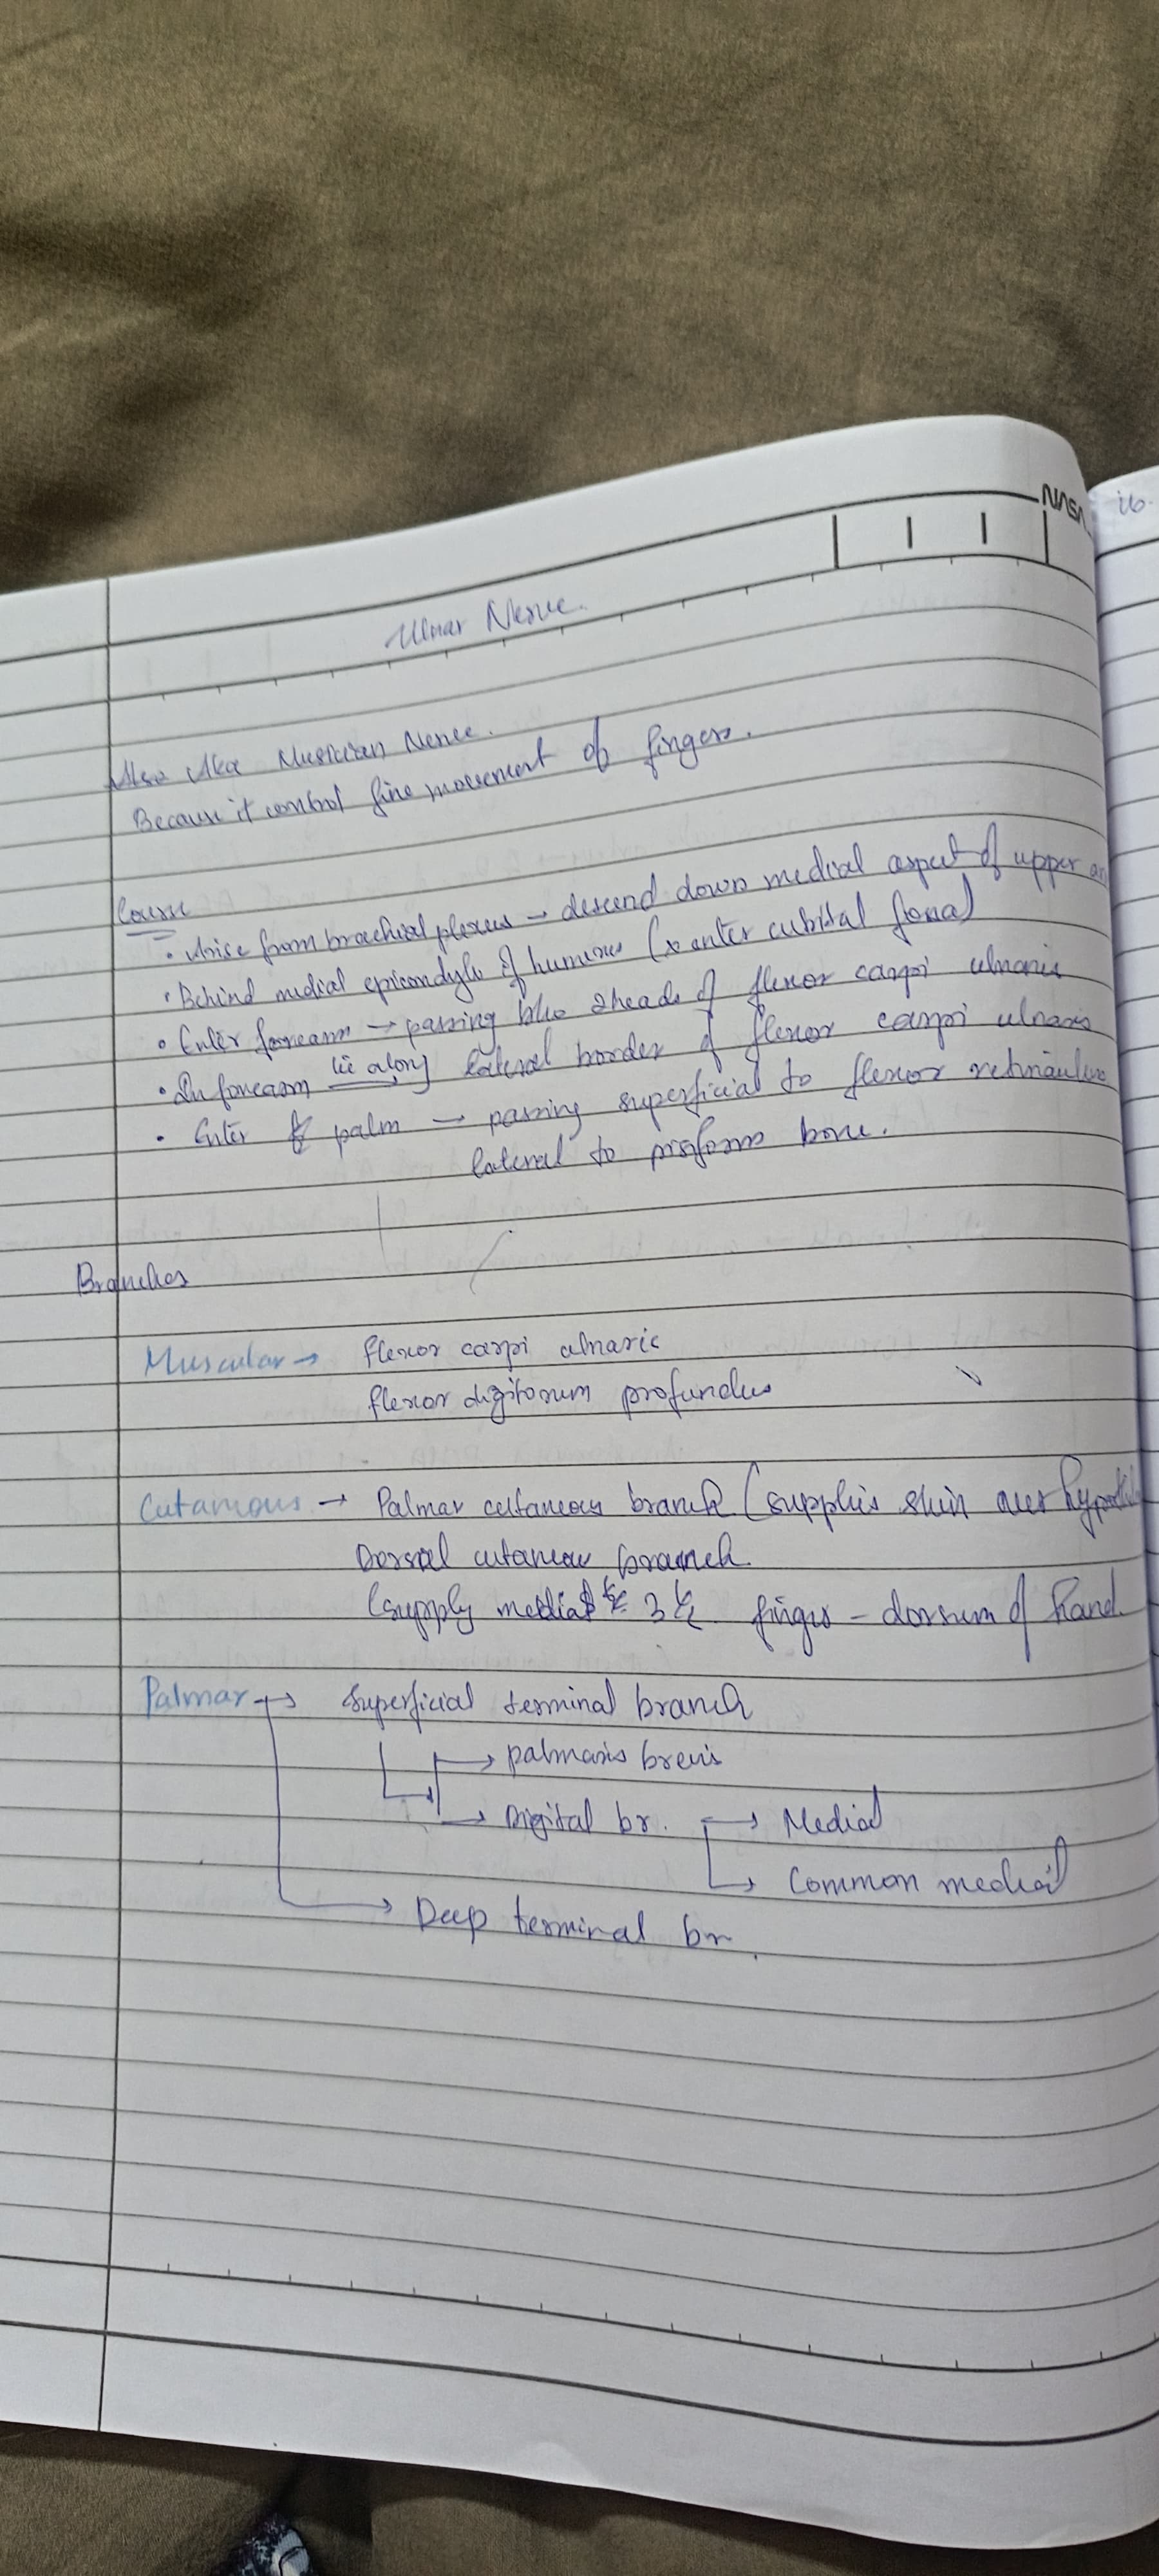 NASA
16.
Ulnar Nerve.
Also Aka Musician Nerve.
Because it control fine movement of fingers.
Course
• Arise from brachial plexus → descend down medial aspect of upper ar
• Behind medial epicondyle of humerus (x enter cubital fossa)
• Enter forearm → passing b/w 2 heads of flexor carpi ulnaris
• In forearm lie along lateral border of flexor carpi ulnaris
• Enter palm → passing superficial to flexor
lateral to bone.
Branches
Muscular → flexor carpi ulnaris
flexor digitorum profundus
→ Palmar cutaneous branch (supplies skin over
Dorsal cutaneous branch
(supply medial 3 ½ fingers - dorsum of hand.
Palmar → Superficial terminal branch
→ palmaris brevis
→ Digital br. → Medial
→ Common medial
→ Deep terminal br.